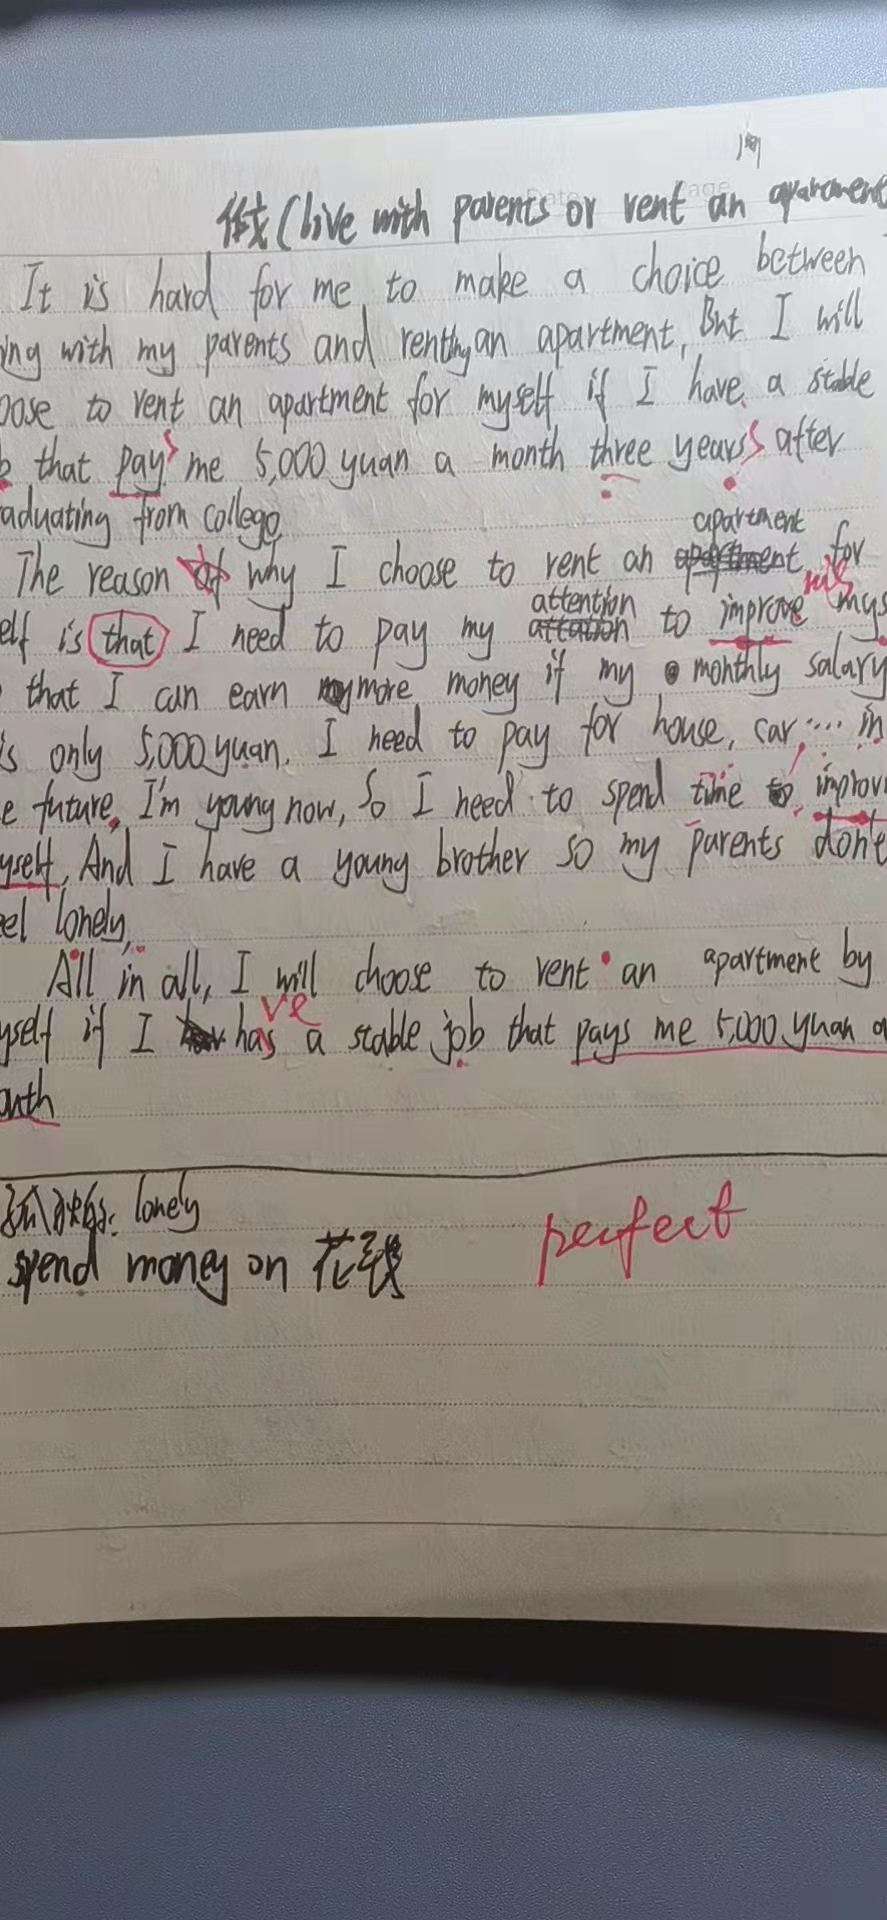 作文(live with parents or rent an aparement
It is hard for me to make a choice between
ing with my parents and renting an apartment, But I will
oose to rent an apartment for myself if I have a stable
b that pays me 5,000 yuan a month three years after
aduating from college
apartment
The reason why I choose to rent an for
attention ing
elf is that I need to pay my to improve mys
that I can earn more money if my monthly salary
is only 5,000 yuan. I need to pay for house, car, .... in
e future, I'm young now, So I need to spend time improvi
yself, And I have a young brother so my parents don't
eel lonely,
All in all, I will choose to rent an apartment by
ve
yself if I has a stable job that pays me 5,000 yuan a
onth
lonely
spend money on 花钱
perfect